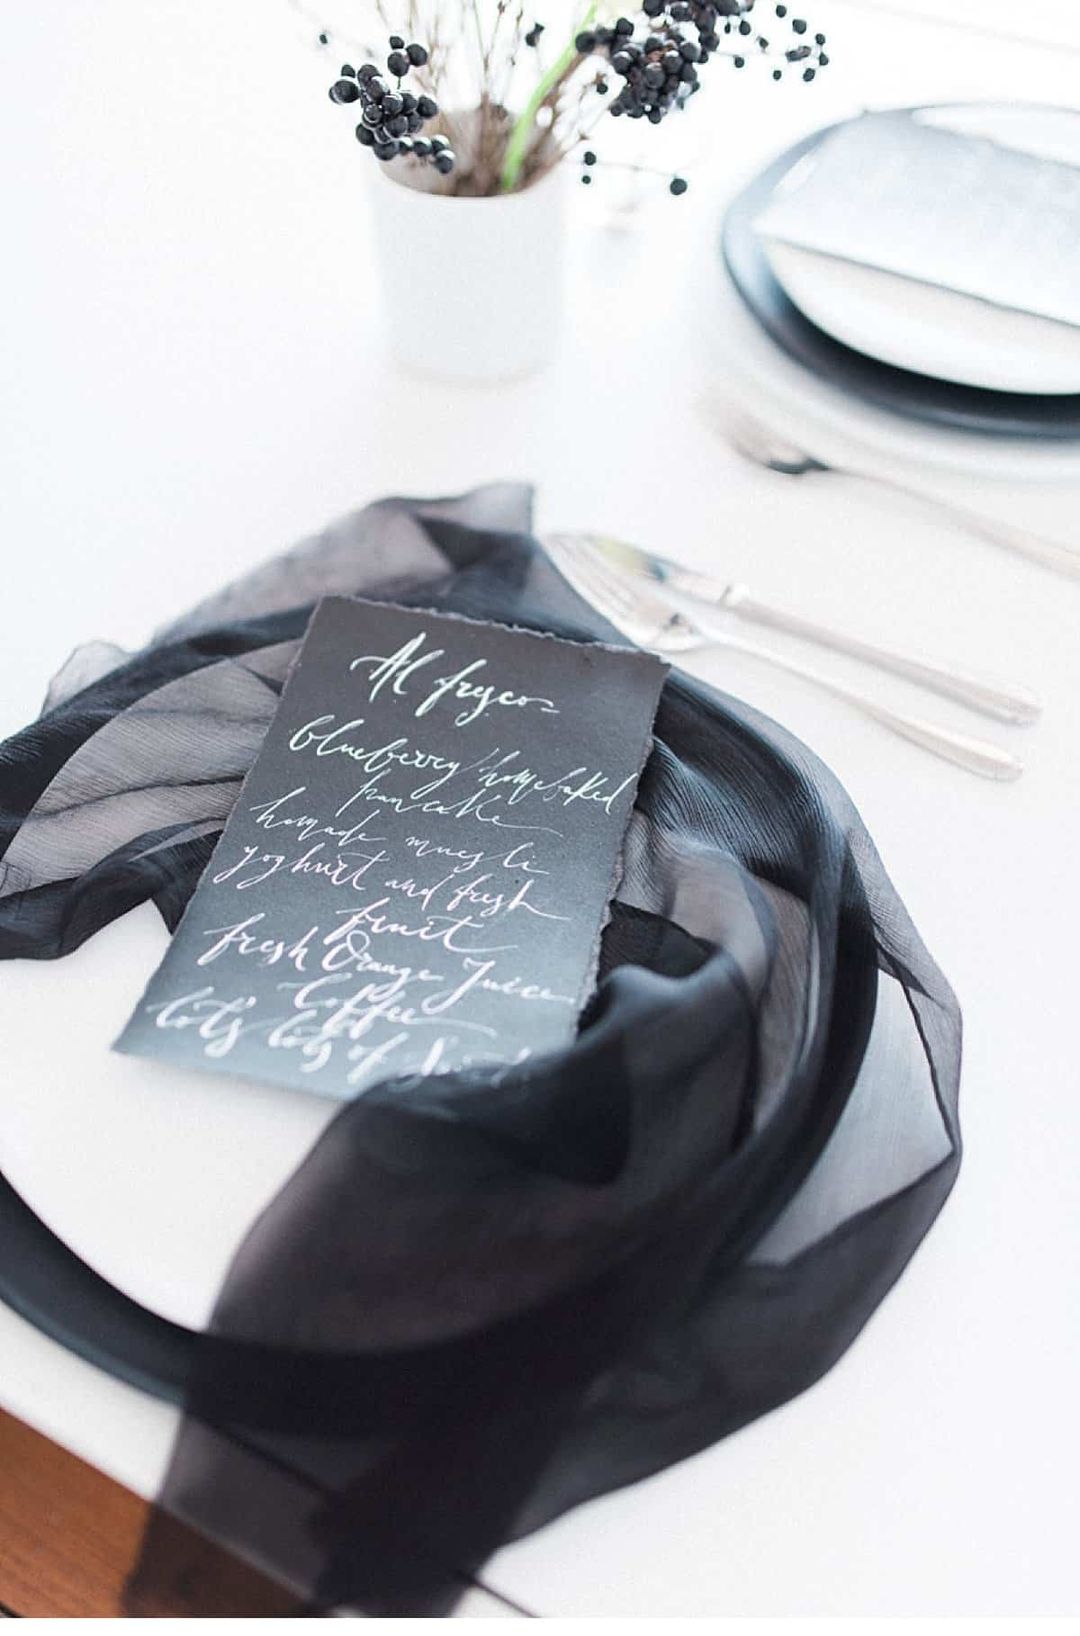 Al fresco
blueberry homebaked
pancake
homade muesli
yoghurt and fresh
fruit
fresh Orange Juice
Coffee
lots lots of